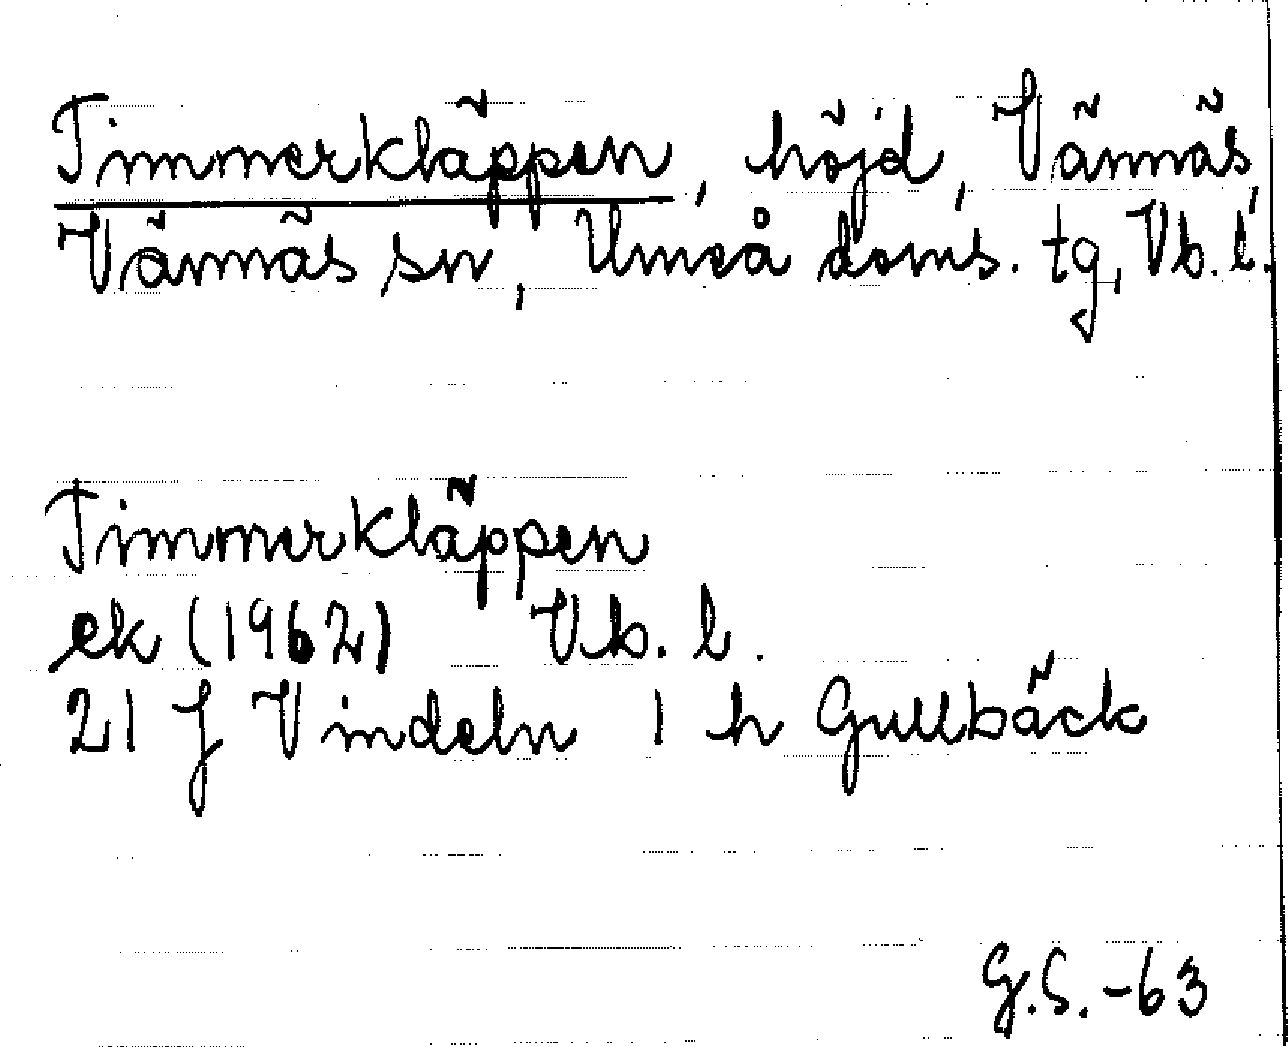 Timmerkläppen, höjd, Vännäs,
Vännäs sn, Umeå doms. tg, Vb. l.
Timmerkläppen
ek (1962) Vb. l.
21 J Vindeln 1 h Gullbäck
G.S. -63